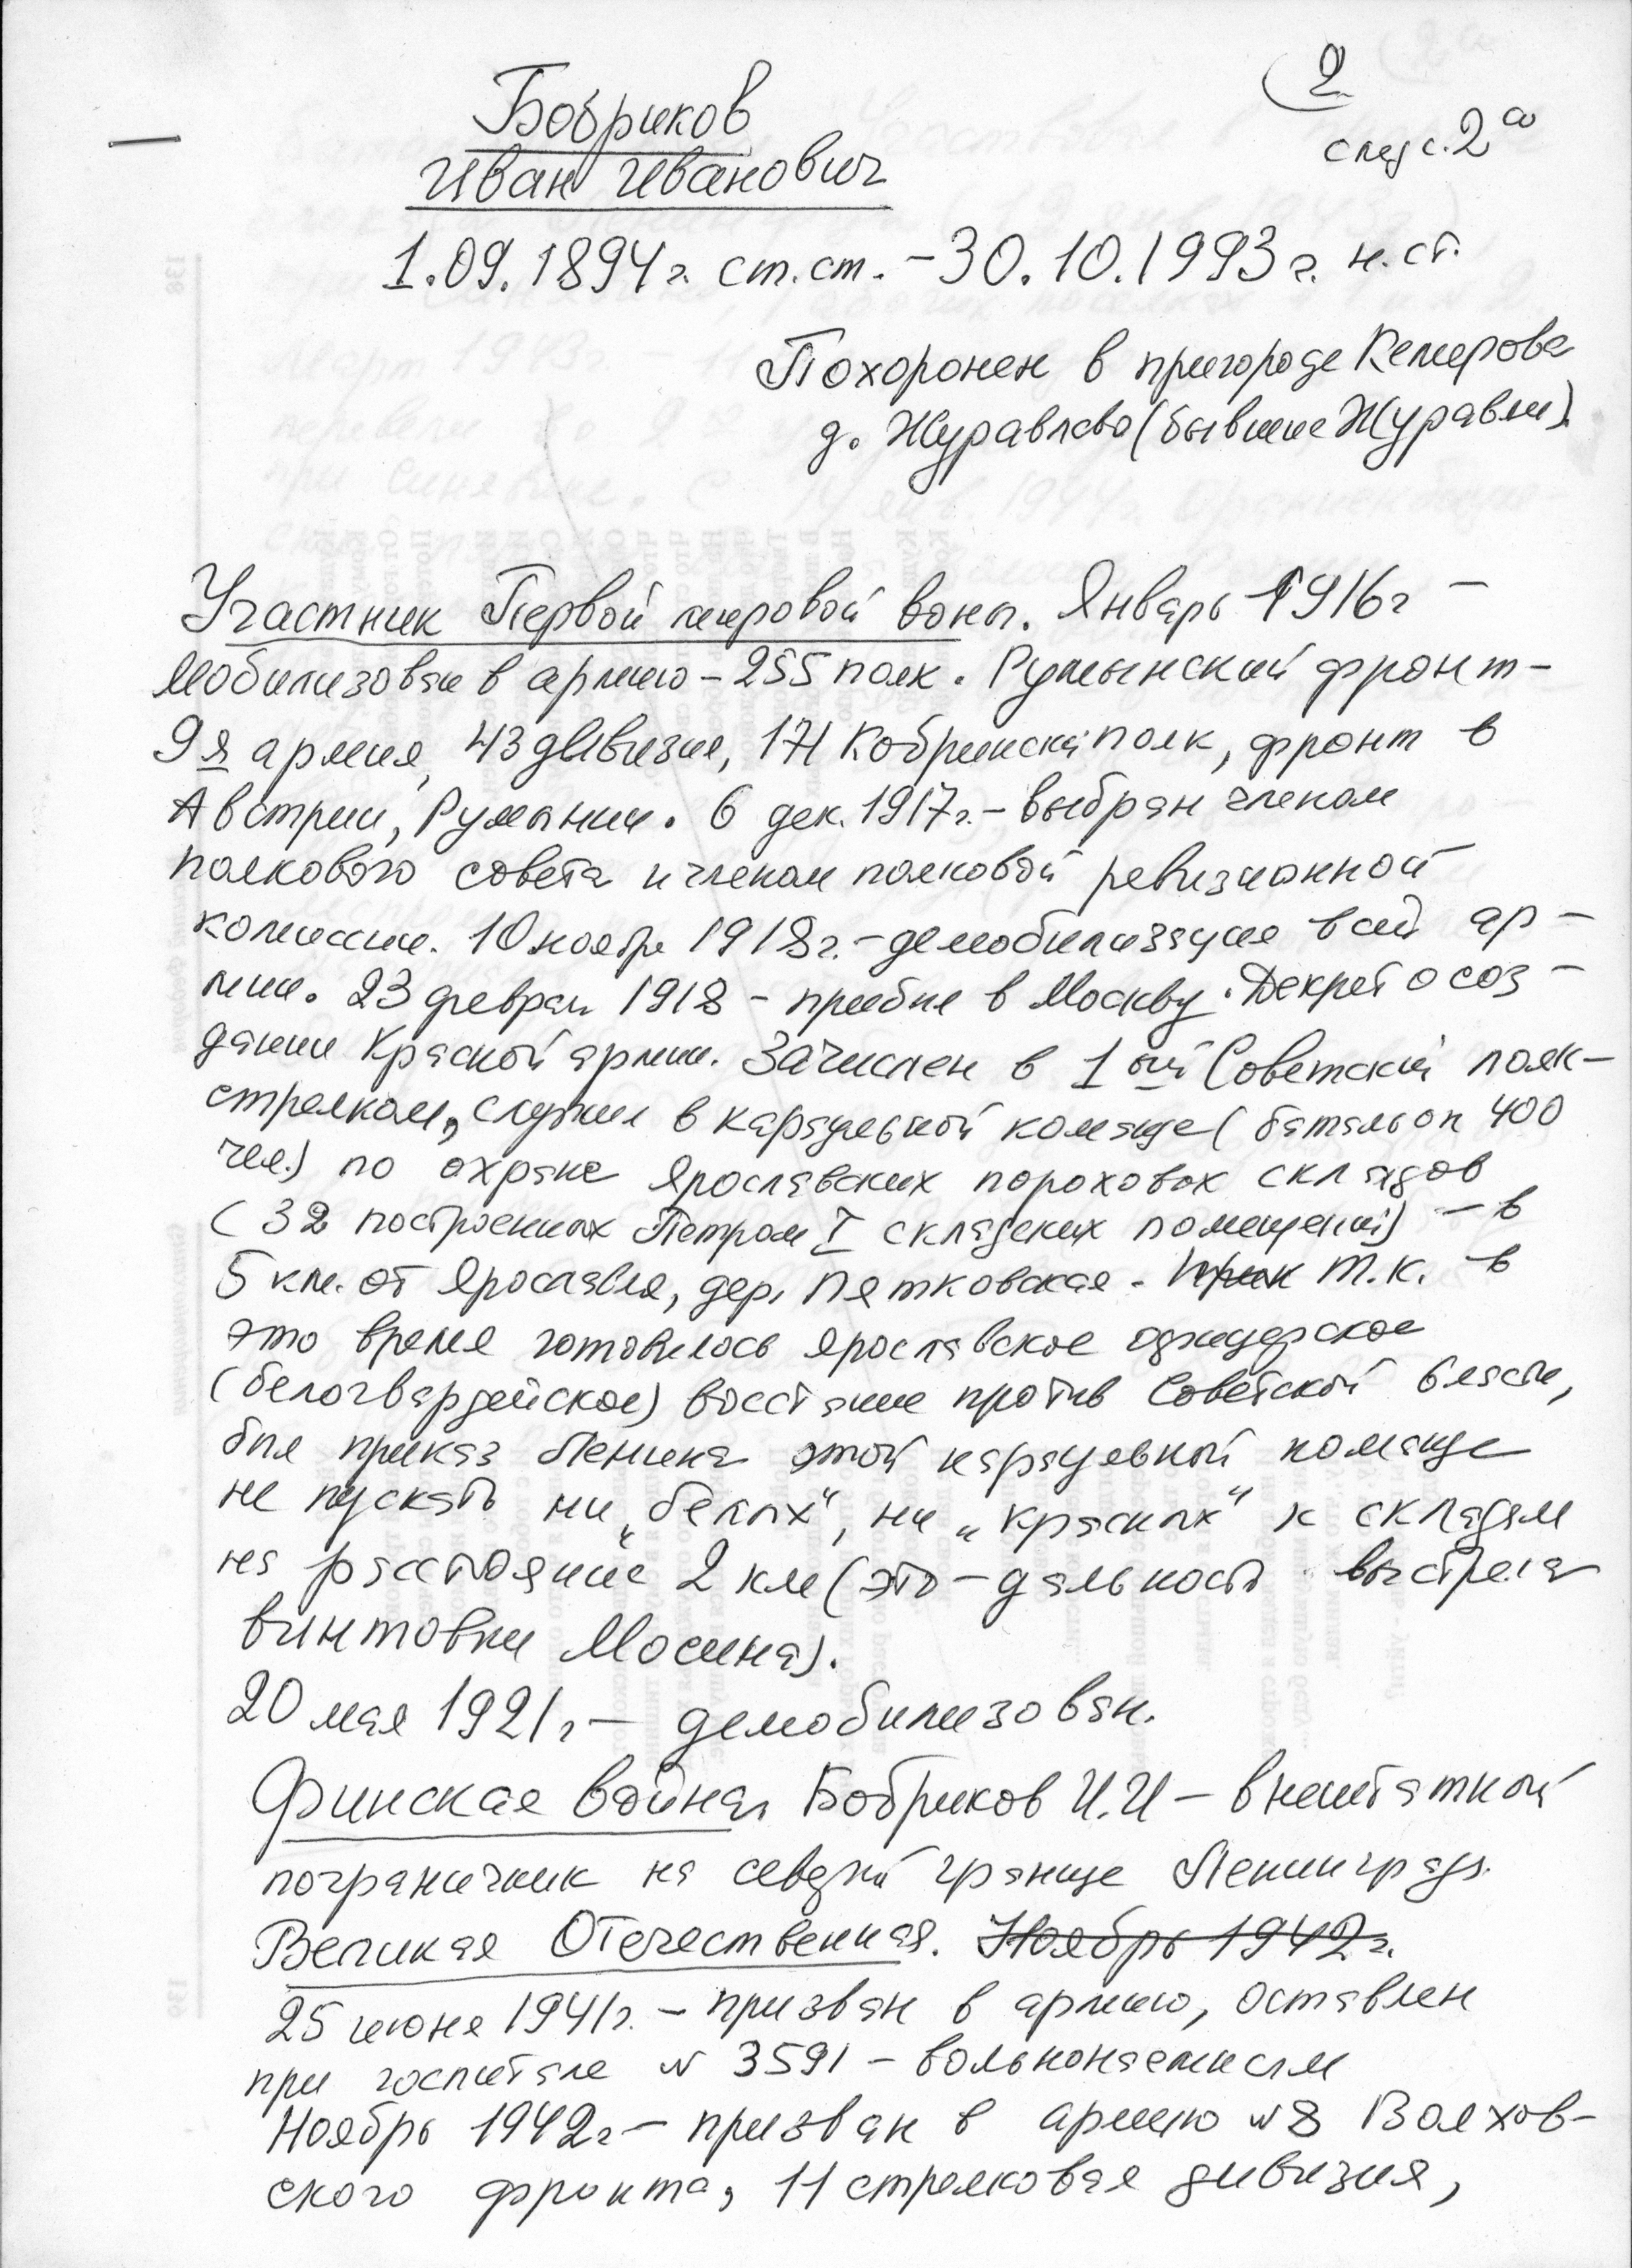 2
след с. 2а
Бобриков
Иван Иванович
1.09.1894г. ст.ст. – 30.10.1993г. н.ст.
Похоронен в пригороде Кемерова
д. Журавлево (бывшие Журавли).
Участник Первой мировой воны. Январь 1916г –
мобилизован в армию – 255 полк. Румынский фронт –
9я армия, 43 дивизия, 171 Кобринский полк, фронт в
Австрии, Румынии. 6 дек. 1917г. – выбран членом
полкового совета и членом полковой ревизионной
комиссии. 10 ноября 1918г. – демобилизация всей ар–
мии. 23 феврал 1918 – прибыл в Москву. Декрет о соз–
дании Красной армии. Зачислен в 1ый Советский полк –
стрелком, служил в караульной команде (батальон 400
чел.) по охране Ярославских пороховых складов
(32 построенных Петром I складских помещений) – в
5 км. от Ярославля, дер. Пятковская. Т.к. в
это время готовилось Ярославское офицерское
(белогвардейское) восстание против Советской власти,
был приказ Ленина этой караульной команде
не пускать ни „белых“, ни „красных“ к складам
на расстояние 2 км (это – дальность выстрела
винтовки Мосина).
20 мая 1921г – демобилизован.
Финская война. Бобриков И.И – внештатной
пограничник на северной границе Ленинграда.
Великая Отечественная. Ноябрь 1942г.
25 июня 1941г. – призван в армию, оставлен
при госпитале № 3591 – вольнонаемным
Ноябрь 1942г – призван в армию №8 Волхов–
ского фронта, 11 стрелковая дивизия,